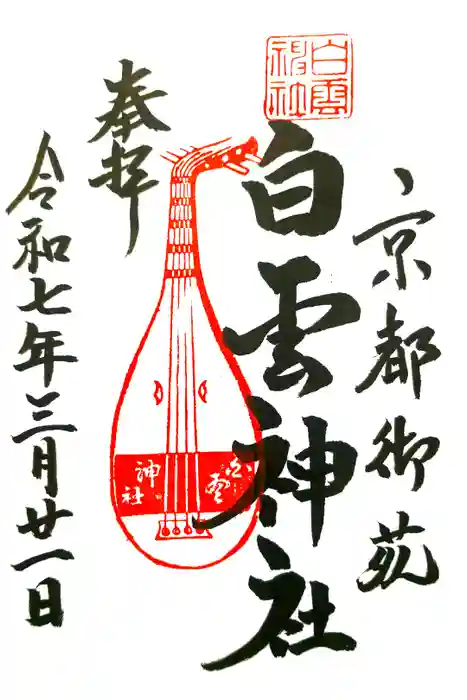 京都御苑
白雲神社
白雲神社
奉拝
白雲
神社
令和七年三月廿一日